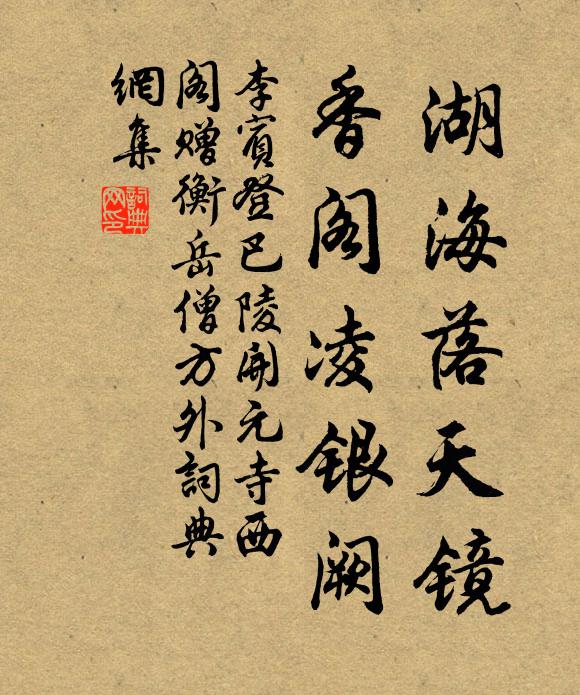 湖海落天镜
香阁凌银阙
李賓登巴陵開元寺西
阁赠衡岳僧方外詞典
網集
詞典
网印